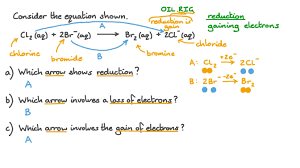 Consider the equation shown.
OIL RIG
reduction is
gain
reduction
gaining electrons
A
Cl₂(aq) + 2Br⁻(aq) → Br₂(aq) + 2Cl⁻(aq)
B
chlorine
bromide
bromine
chloride
A: Cl₂ +2e⁻→ 2Cl⁻
B: 2Br⁻ -2e⁻→ Br₂
a) Which arrow shows reduction?
A
b) Which arrow involves a loss of electrons?
B
c) Which arrow involves the gain of electrons?
A